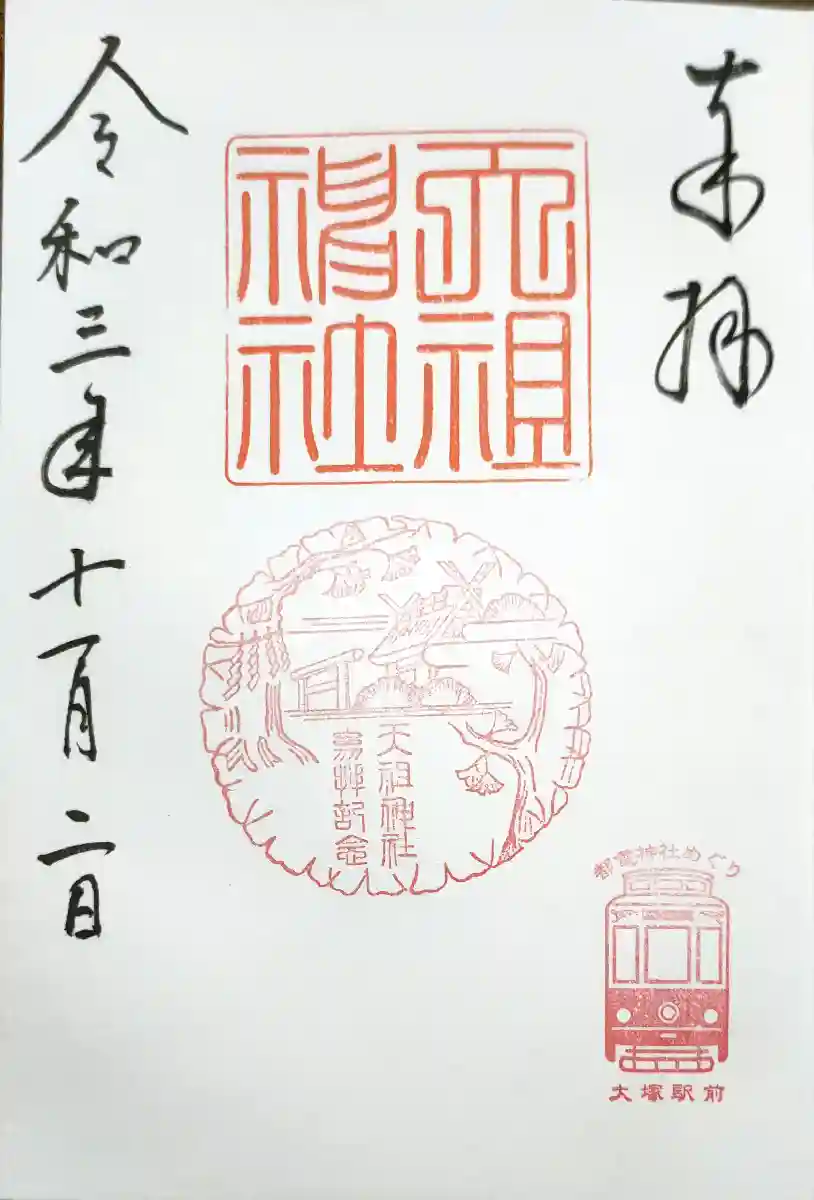 奉拝
天祖
神社
天祖神社
参拝記念
都電神社めぐり
大塚駅前
令和三年十一月二日